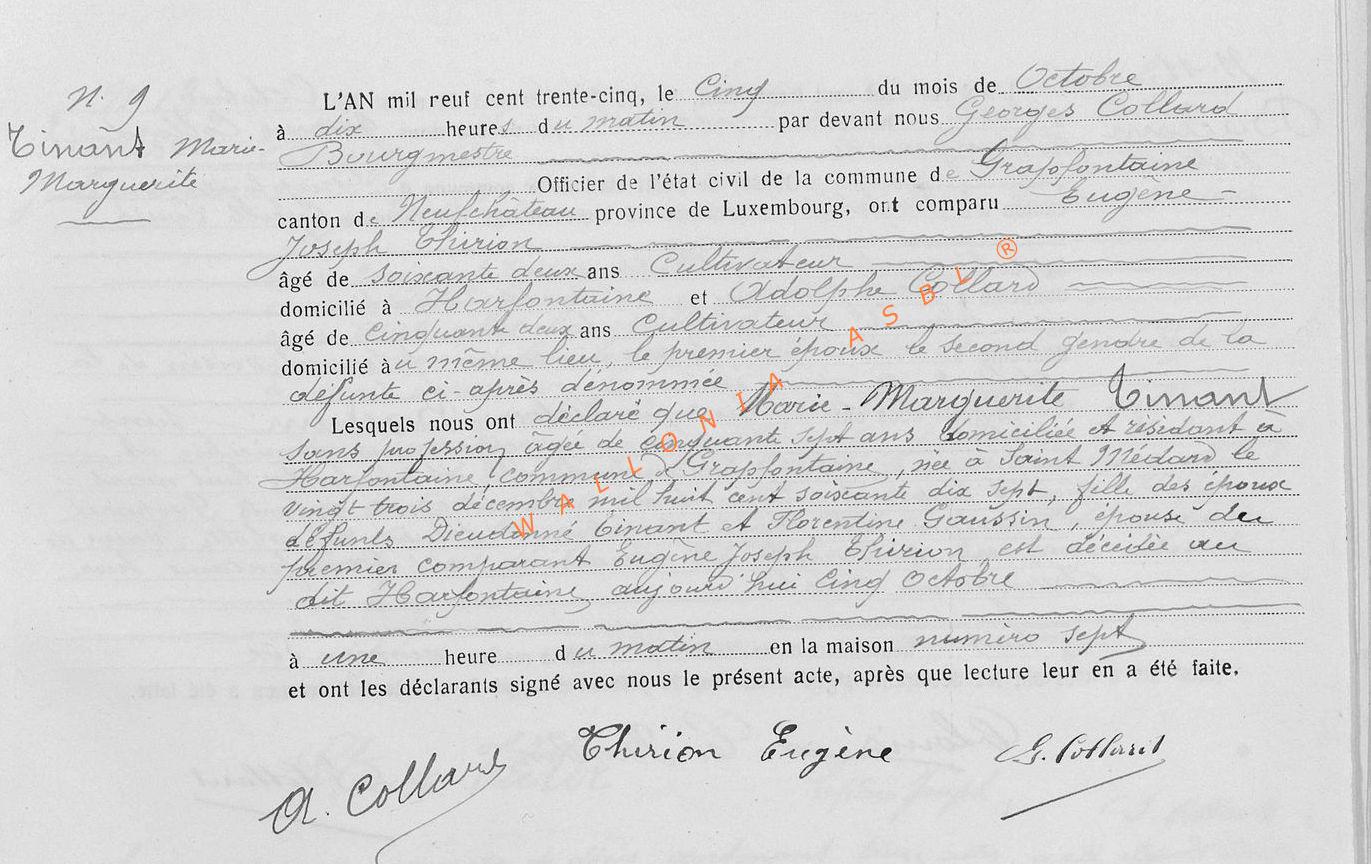 N. 9
Tinant Marie-
Marguerite
L'AN mil neuf cent trente-cinq, le Cinq du mois de Octobre
à dix heures du matin par devant nous Georges Collard
Bourgmestre
Officier de l'état civil de la commune de Grapfontaine
canton de Neufchâteau province de Luxembourg, ont comparu Eugène-
Joseph Thirion
âgé de soixante deux ans Cultivateur
domicilié à Harfontaine et Adolphe Collard
âgé de cinquante deux ans Cultivateur
domicilié àu même lieu, le premier époux le second gendre de la
défunte ci-après dénommée
Lesquels nous ont déclaré que Marie-Marguerite Tinant
sans profession, âgée de cinquante sept ans domiciliée et résidant à
Harfontaine, commune de Grapfontaine, née à Saint Médard le
vingt trois décembre mil huit cent soixante dix sept, fille des époux
défunts Dieudonné Tinant et Florentine Gaussin, épouse du
premier comparant Eugène Joseph Thirion est décédée au
dit Harfontaine, aujourd'hui cinq Octobre
à une heure du matin en la maison numéro sept
et ont les déclarants signé avec nous le présent acte, après que lecture leur en a été faite.
A. Collard Thirion Eugène G. Collard
WALLONIA ASBL ®